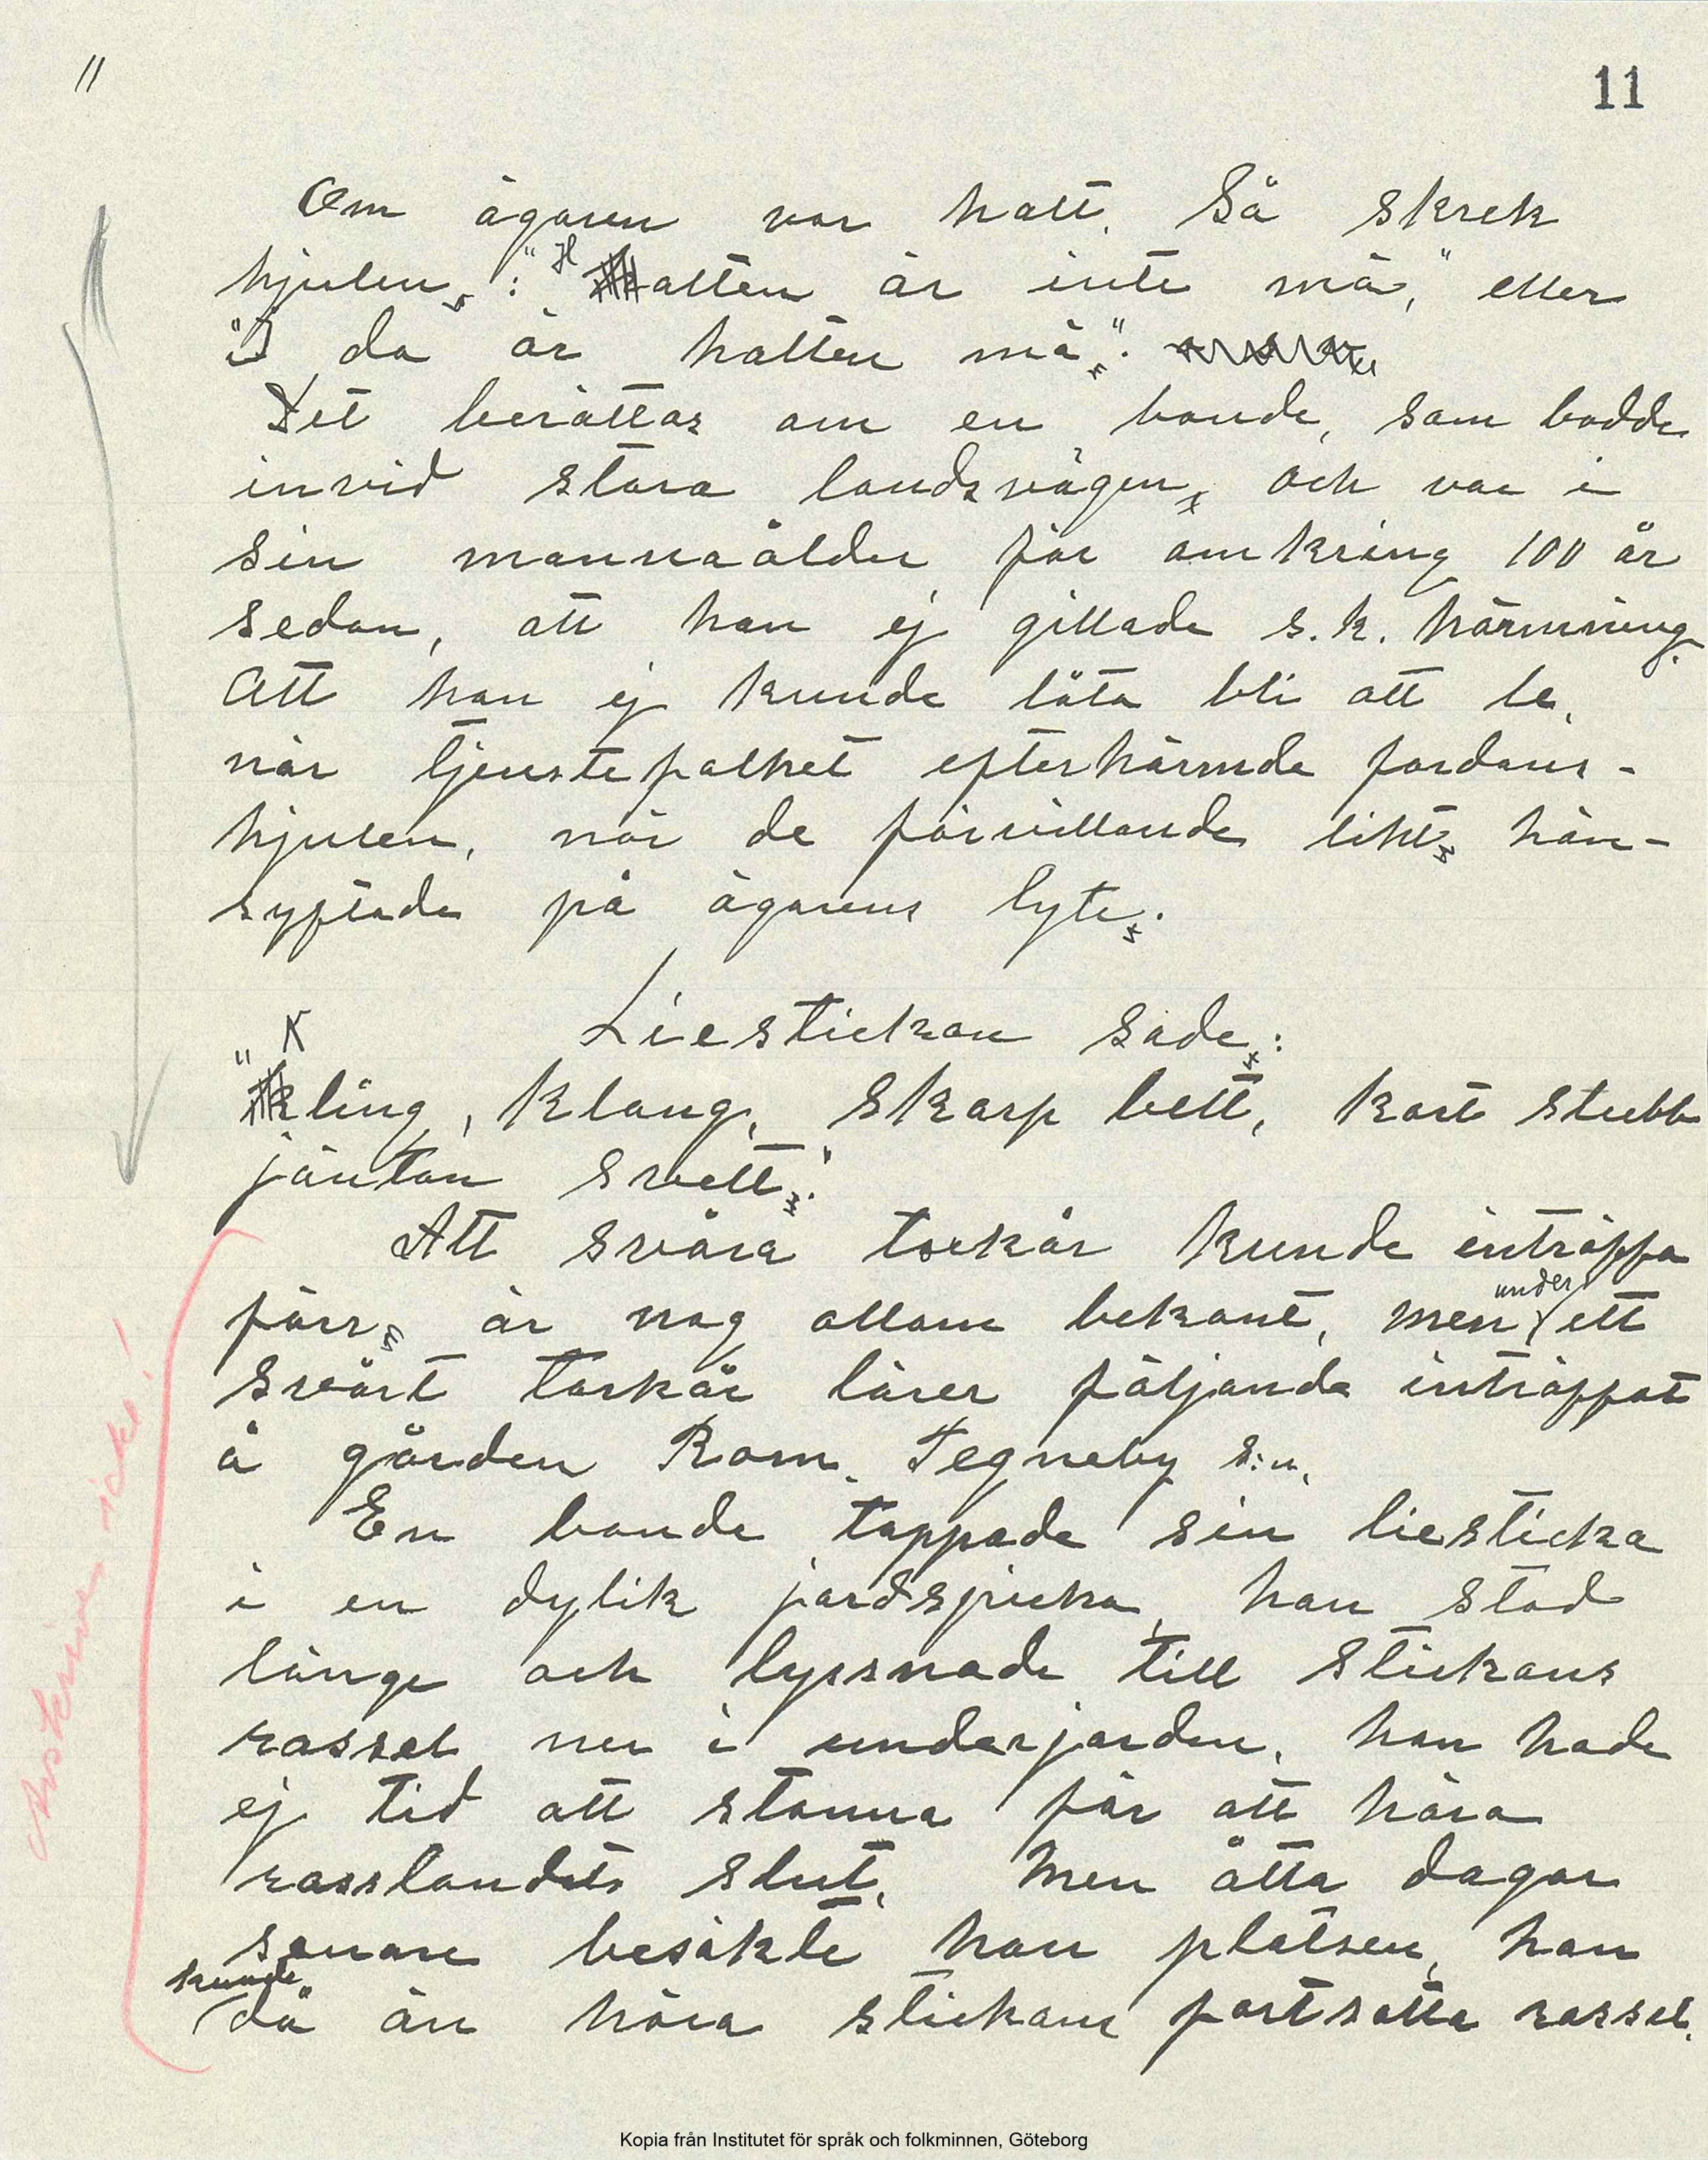 11
11
Om ägaren var halt. Så skrek
hjulen: "Halten är inte mä," eller
"I da är halten mä".
Det berättas om en bonde, som bodde
invid stora landsvägen, och var i
sin mannaålder för omkring 100 år
sedan, att han ej gillade s.k. härmning.
Att han ej kunde låta bli att le,
när tjenstefolket efterhärmde fordons-
hjulen, när de förvillande likt, hän-
syftade på ägarens lyte.
Liestickan sade:
"Kling, klang, skarp bett, kort stubb
jäntan svett."
Att svåra torkår kunde inträffa
förr, är nog allom bekant, men under ett
svårt torkår lärer följande inträffat
å gården Rom. Tegneby s:n.
En bonde tappade sin liesticka
i en dylik jordspricka, han stod
länge och lyssnade till stickans
rassel ner i underjorden, han hade
ej tid att stanna för att höra
rasslandets slut. Men åtta dagar
senare besökte han platsen, han
kunde
då än höra stickans fortsatta rassel.
Avskrives icke!
Kopia från Institutet för språk och folkminnen, Göteborg